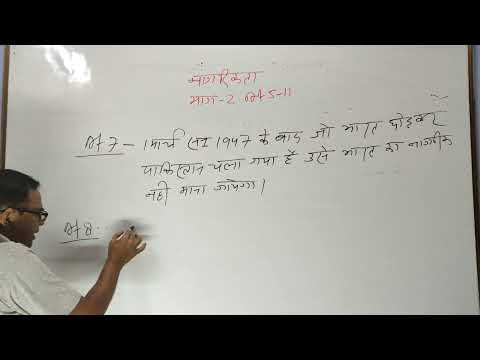 नागरिकता
भाग-2 Art 5-11
Art 7 - 1 मार्च सन् 1947 के बाद जो भारत छोड़कर
पाकिस्तान चला गया है उसे भारत का नागरिक
नही माना जायेगा।
Art 8-